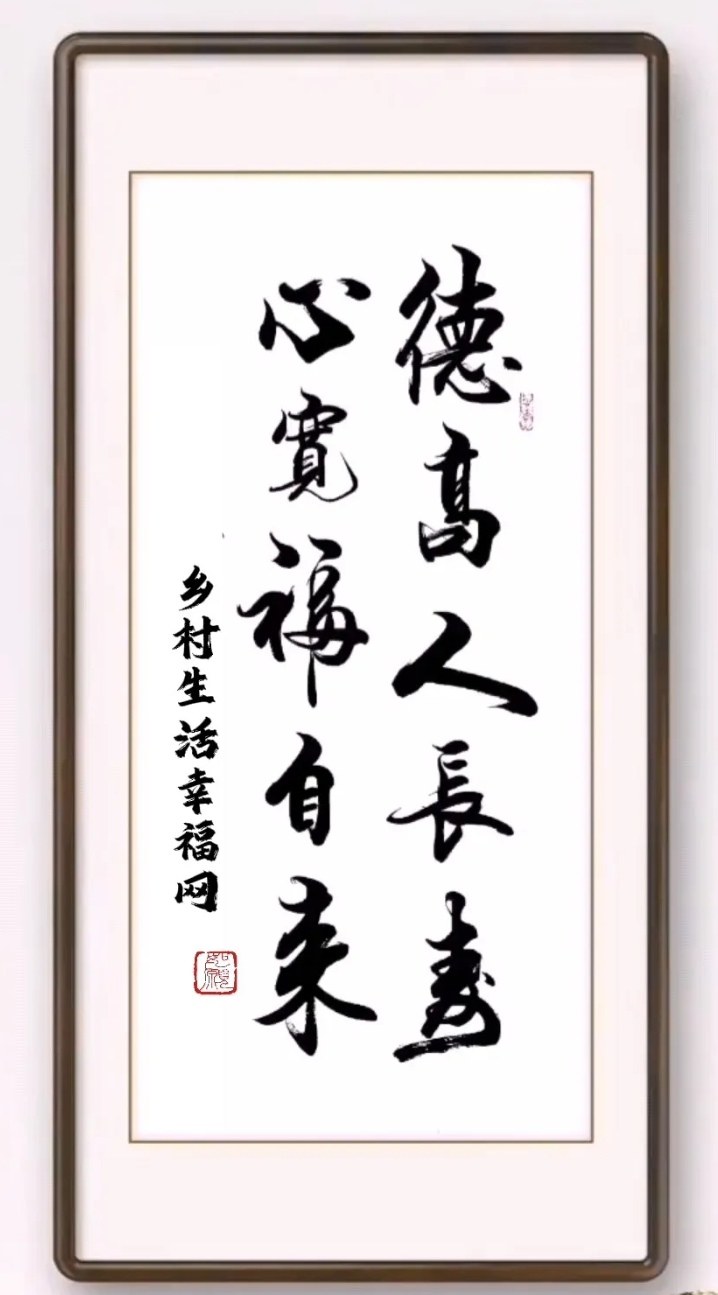 德高人長壽
心寬福自来
乡村生活幸福网